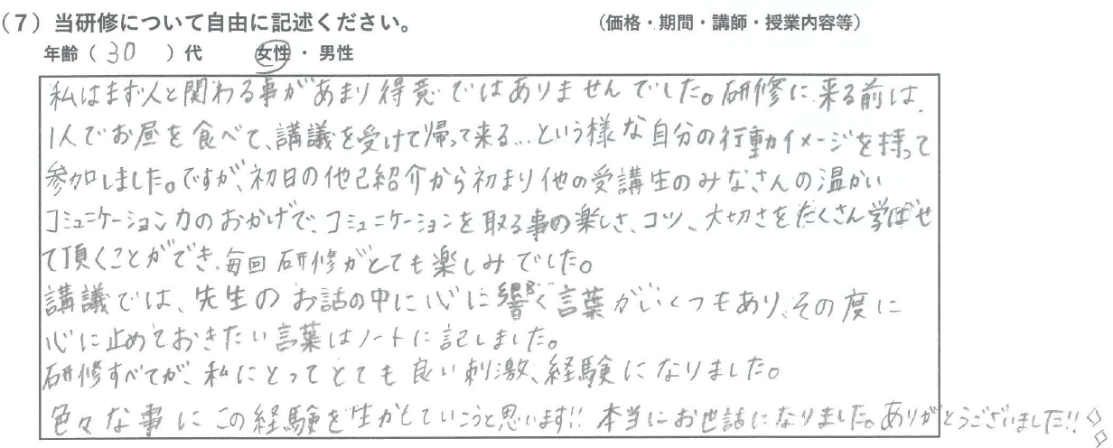 (7) 当研修について自由に記述ください。 (価格・期間・講師・授業内容等)
年齢 ( 30 ) 代 女性 ・ 男性
私はまず人と関わる事があまり得意ではありませんでした。研修に来る前は、
1人でお昼を食べて、講義を受けて帰って来る…という様な自分の行動イメージを持って
参加しました。ですが、初日の他己紹介から初まり他の受講生のみなさんの温かい
コミュニケーション力のおかげで、コミュニケーションを取る事の楽しさ、コツ、大切さをたくさん学ばせ
て頂くことができ、毎回研修がとても楽しみでした。
講議では、先生のお話の中に心に響く言葉がいくつもあり、その度に
心に止めておきたい言葉はノートに記しました。
研修すべてが、私にとってとても良い刺激、経験になりました。
色々な事にこの経験を生かしていこうと思います!! 本当にお世話になりました。ありがとうございました!!